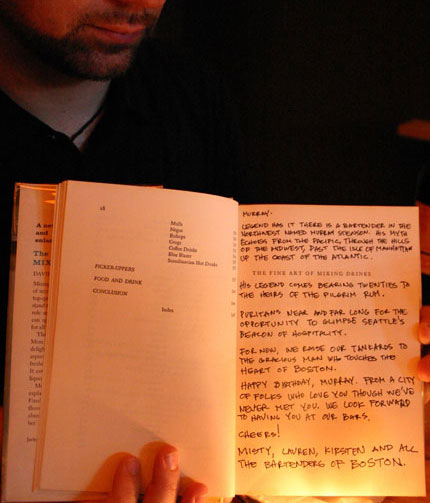 18
Mulls
Negus
Bishops
Grogs
Coffee Drinks
Blue Blazer
Scandinavian Hot Drinks
PICKER-UPPERS
FOOD AND DRINK
CONCLUSION
Index
MURRAY.
LEGEND HAS IT THERE IS A BARTENDER IN THE
NORTHWEST NAMED MURRAY STENSON. HIS MYTH
ECHOES FROM THE PACIFIC, THROUGH THE HILLS
OF THE MIDWEST, PAST THE ISLE OF MANHATTAN
UP THE COAST OF THE ATLANTIC.
THE FINE ART OF MIXING DRINKS
HIS LEGEND COMES BEARING TWENTIES TO
THE HEIRS OF THE PILGRIM RUM.
PURITANS NEAR AND FAR LONG FOR THE
OPPORTUNITY TO GLIMPSE SEATTLE'S
BEACON OF HOSPITALITY.
FOR NOW, WE RAISE OUR TANKARDS TO
THE GRACIOUS MAN WHO TOUCHES THE
HEART OF BOSTON.
HAPPY BIRTHDAY, MURRAY. FROM A CITY
OF FOLKS WHO LOVE YOU THOUGH WE'VE
NEVER MET YOU. WE LOOK FORWARD
TO HAVING YOU AT OUR BARS.
CHEERS!
MISTY, LAUREN, KIRSTEN AND ALL
THE BARTENDERS OF BOSTON.